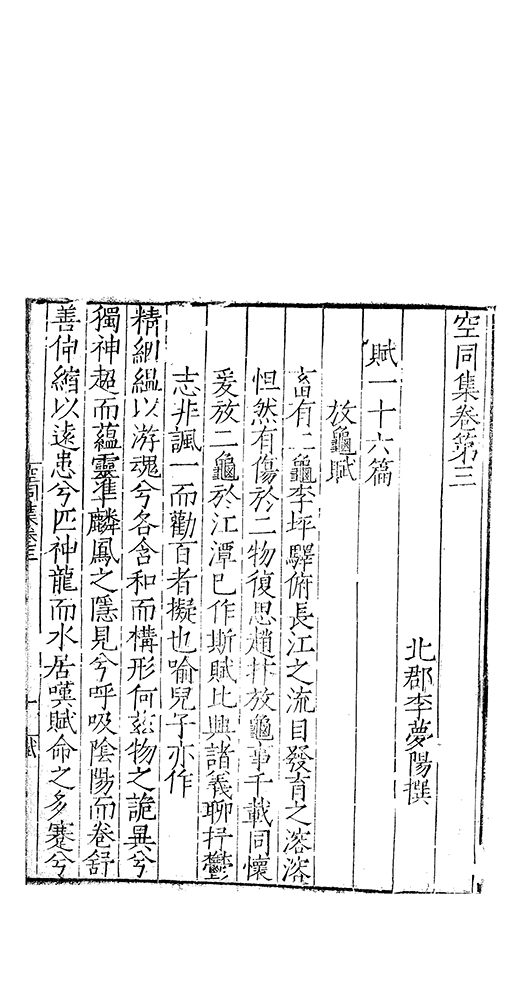 空同集卷第三
北郡李夢陽撰
賦一十六篇
放龜賦
畜有二龜李坪驛俯長江之流目發育之溶溶
怛然有傷於二物復思趙抃放龜事千載同懷
爰放二龜於江潭已作斯賦比興諸義聊抒鬱
志非諷一而勸百者擬也喻兒子亦作
精絪縕以游魂兮各含和而構形何茲物之詭異兮
獨神超而蘊靈準麟鳳之隱見兮呼吸陰陽而卷舒
善伸縮以遠患兮匹神龍而水居嘆賦命之多蹇兮
空同集卷三
一
賦